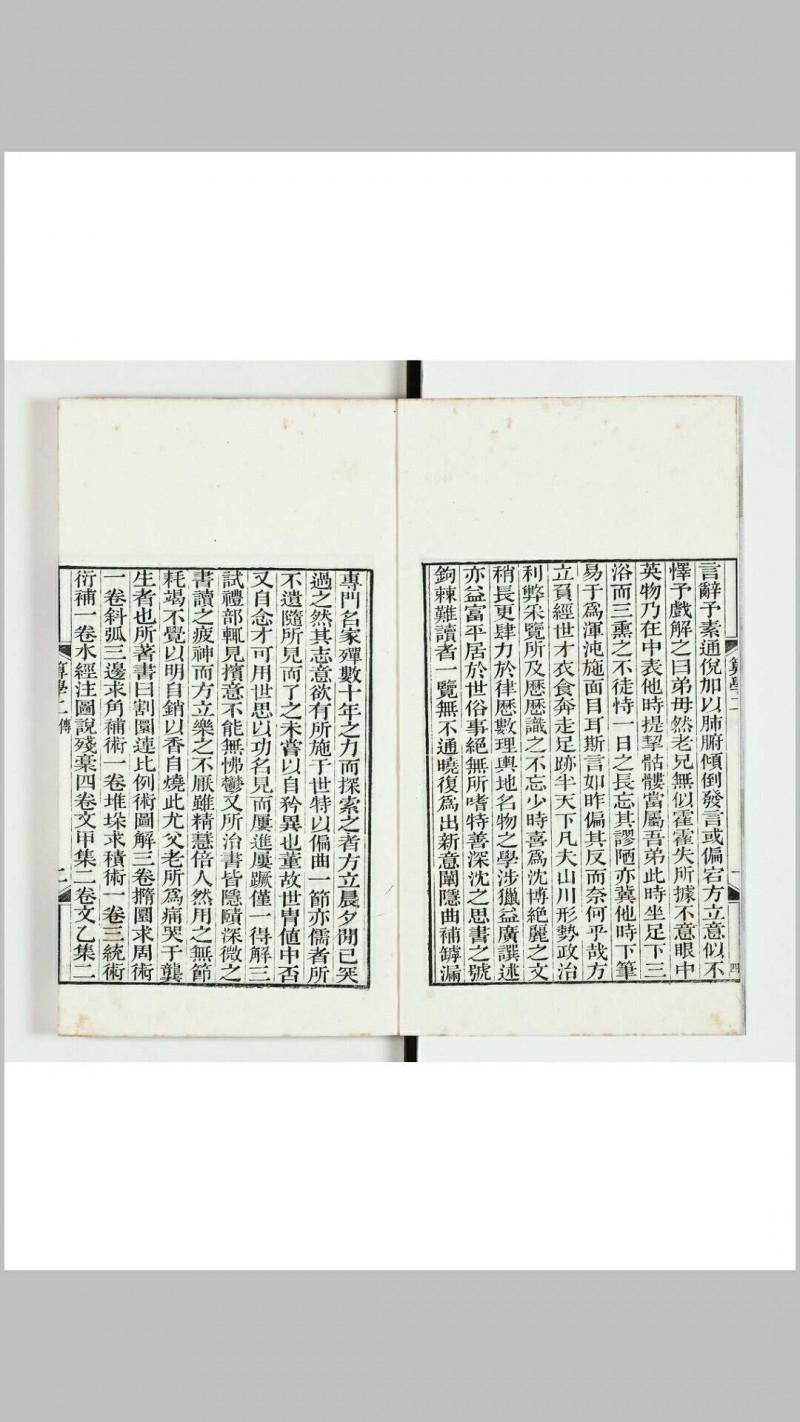 言辭予素通倪加以肺腑傾倒發言或偏宕方立意似不
懌予戲解之曰弟毋然老兄無似霍霍失所據不意眼中
英物乃在中表他時提挈骷髏當屬吾弟此時坐足下三
浴而三熏之不徒恃一日之長忘其謬陋亦冀他時下筆
易于爲渾沌施面目耳斯言如昨偏其反而奈何乎哉方
立負經世才衣食奔走足跡半天下凡大山川形勢政治
利弊采覽所及歷歷識之不忘少時喜爲沈博絶麗之文
稍長更肆力於律歷數理輿地名物之學涉獵益廣譔述
亦益富平居於世俗事絶無所嗜特善深沈之思書之號
鉤棘難讀者一覽無不通曉復爲出新意闡隱曲補罅漏
算學二
一
四
專門名家殫數十年之力而探索之者方立晨夕閒已突
過之然其志意欲有所施于世特以偏曲一節亦儒者所
不遺隨所見而了之未嘗以自矜異也董故世胄値中否
又自念才可用世思以功名見而屢進屢蹶僅一得解三
試禮部輒見擯意不能無怫鬱又所治書皆隱賾深微之
書讀之疲神而方立樂之不厭雖精慧倍人然用之無節
耗竭不覺以明自銷以香自燒此尤父老所爲痛哭于龔
生者也所著書曰割圜連比例術圖解三卷橢圜求周術
一卷斜弧三邊求角補術一卷堆垛求積術一卷三統術
衍補一卷水經注圖說殘稾四卷文甲集二卷文乙集二
算學二 傳
二